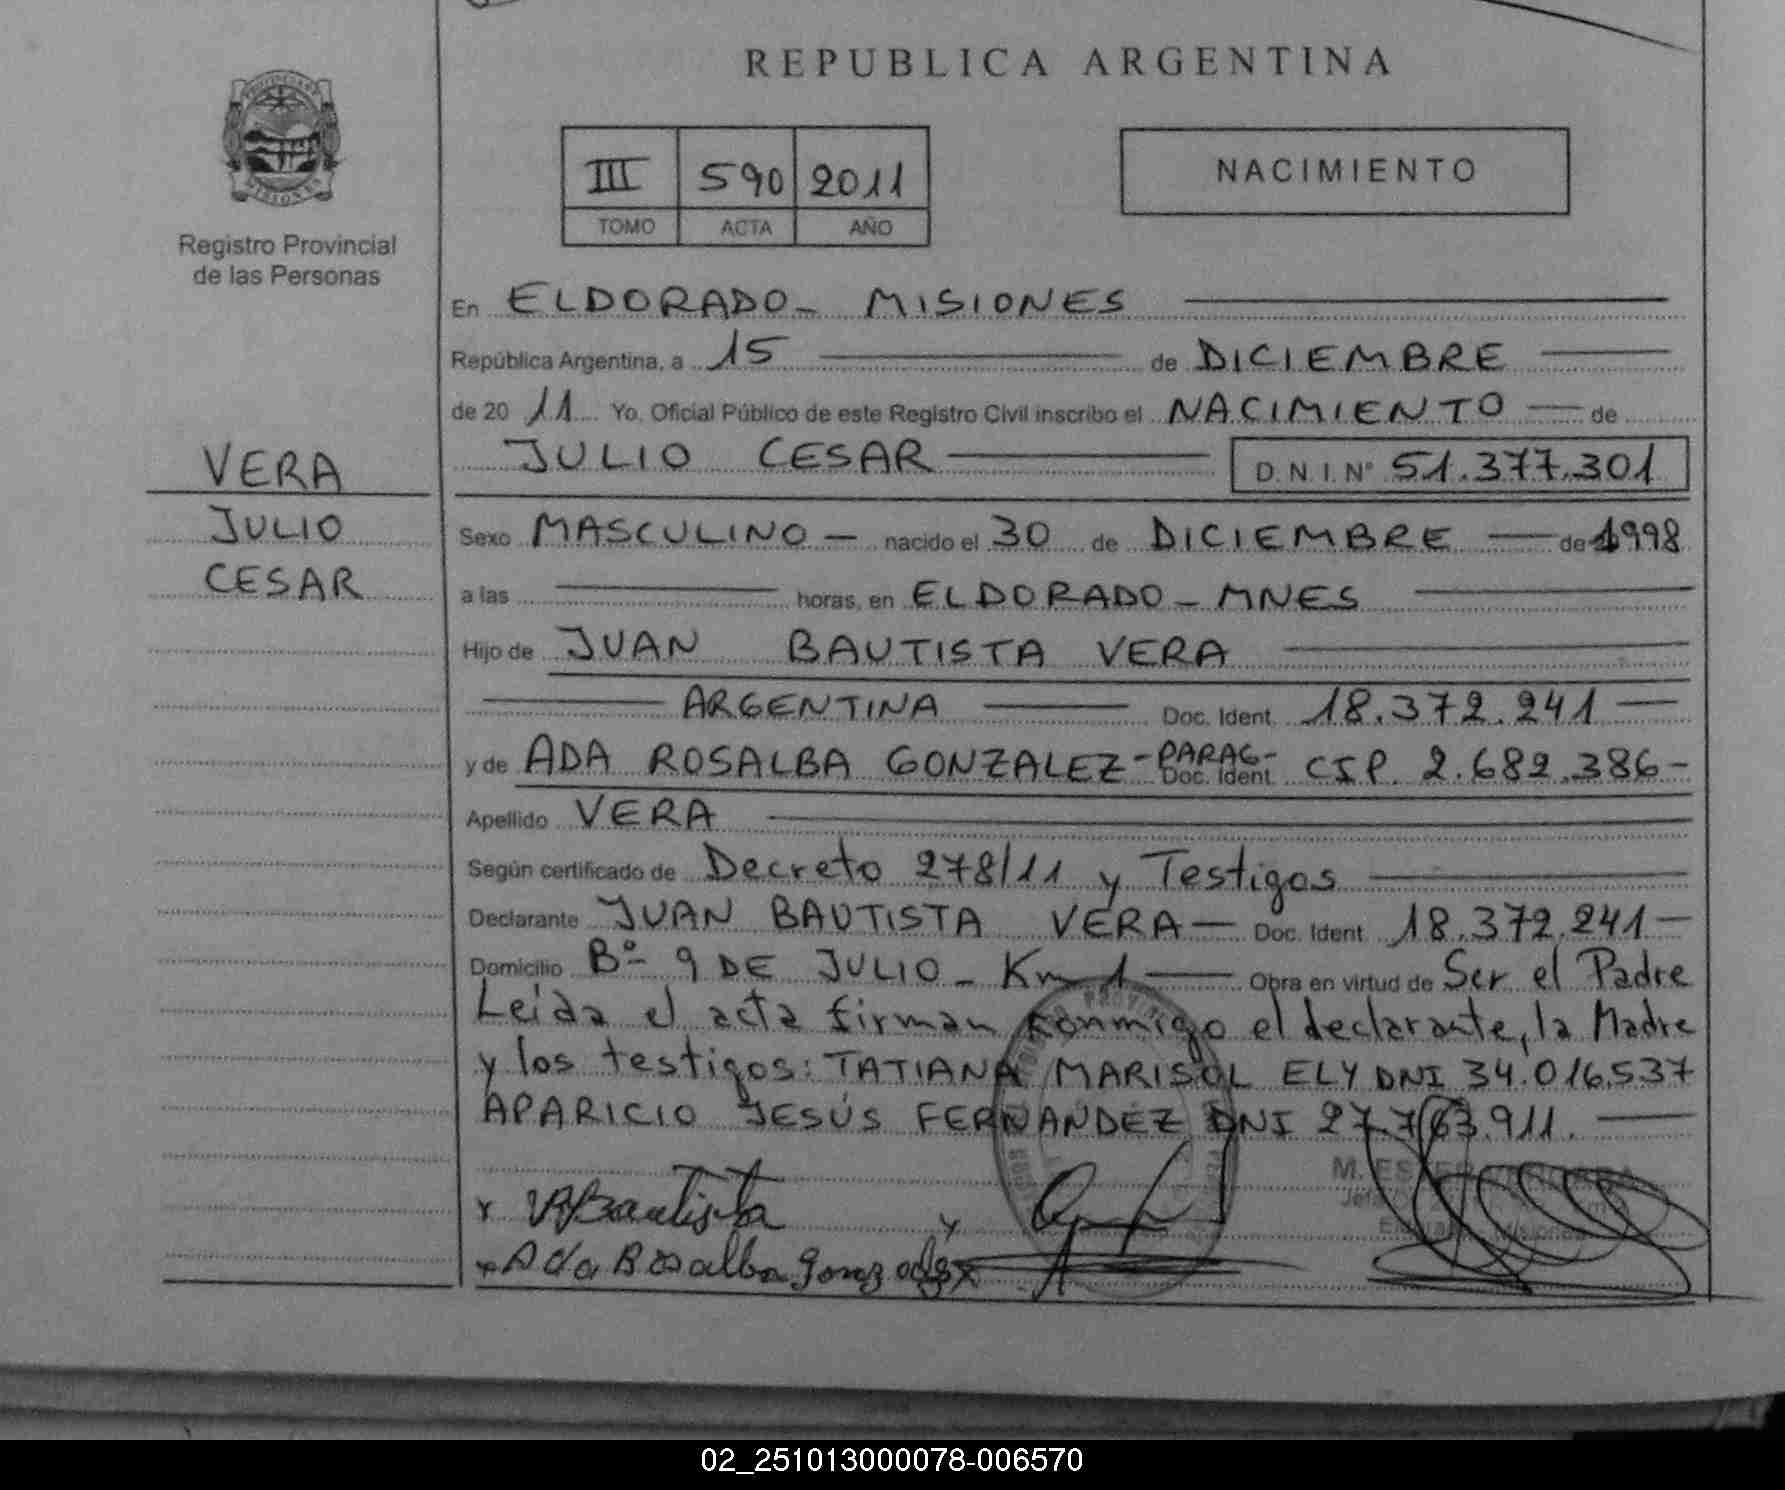 REPUBLICA ARGENTINA
III 590 2011
TOMO ACTA AÑO
NACIMIENTO
Registro Provincial
de las Personas
VERA
JULIO
CESAR
En ELDORADO - MISIONES
República Argentina, a 15 de DICIEMBRE
de 20 11 Yo, Oficial Público de este Registro Civil inscribo el NACIMIENTO de
JULIO CESAR D.N.I. Nº 51.377.301
Sexo MASCULINO - nacido el 30 de DICIEMBRE de 1998
a las horas, en ELDORADO - MNES
Hijo de JUAN BAUTISTA VERA
ARGENTINA Doc. Ident. 18.372.241
y de ADA ROSALBA GONZALEZ - PARAG - Doc. Ident. CIP. 2.682.386 -
Apellido VERA
Según certificado de Decreto 278/11 y Testigos
Declarante JUAN BAUTISTA VERA - Doc. Ident. 18.372.241 -
Domicilio Bº 9 DE JULIO - Km 1 Obra en virtud de Ser el Padre
Leida el acta firman conmigo el declarante, la Madre
y los testigos: TATIANA MARISOL ELY DNI 34.016.537
APARICIO JESÚS FERNANDEZ DNI 27.763.911.
Bautista
Ada Rosalba
M. ESTER
Eldorado, Misiones
02_251013000078-006570